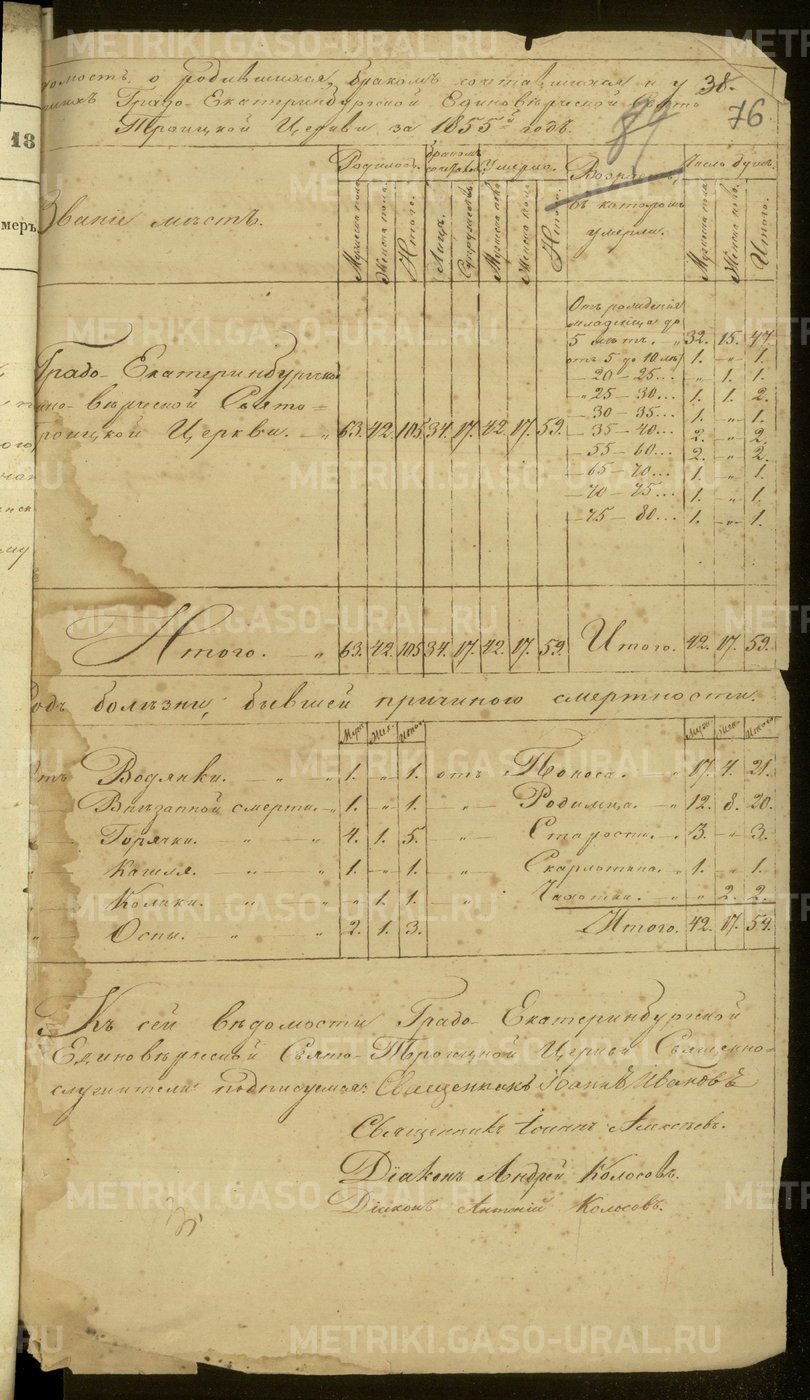 домость о родившихся, бракомъ сочтавшихся и у 38.
Градо-Екатеринбургской Единовѣрческой Свято 89 76
Троицкой Церкви за 1855й годъ.
18
мерѣ
Званіе мѣстъ. Родилось. Бракомъ Умерло. Возрастъ, Число душъ.
въ которомъ умерли.
Мужеска пола Женска пола Итого. Лицъ. Супружествъ Мужеска пола Женска пола Итого Мужеска пола Женска пола Итого.
Отъ рожденія
младенца до
5 лѣтъ. - „ 32. 15. 47.
отъ 5 до 10 лѣтъ 1. „ 1.
Градо-Екатеринбургской
— 20 — 25... „ 1. 1.
„ 25 — 30... 1. 1. 2.
ино-вѣрческой Свято-
— 30 — 35... 1. „ 1.
роицкой Церкви. - „ 63. 42. 105. 34. 17. 42. 17. 59. — 35 — 40... 2. „ 2.
— 55 — 60... 2. „ 2.
— 65 — 70... 1. „ 1.
— 70 — 75... 1. „ 1.
— 75 — 80... 1. „ 1.
Итого. „ 63. 42. 105. 34. 17. 42. 17. 59. Итого. 42. 17. 59.
Родъ болѣзни, бывшей причиною смертности.
Муж. Жен. Итого. Муж. Жен. Итого.
Отъ Водянки. — „ „ 1. „ 1. отъ Поноса. — „ 17. 4. 21.
Внѣзапной смерти. „ 1. „ 1. „ — Родимца. — „ 12. 8. 20.
Горячки. „ „ 4. 1. 5. „ — Старости. „ 3. „ 3.
Кашля. „ „ 1. „ 1. „ — Скарлотина. „ 1. „ 1.
„ Колики. „ „ „ 1. 1. — „ Чахотки. — „ „ 2. 2.
„ Оспы. — „ „ 2. 1. 3. Итого. 42. 17. 59.
Къ сей вѣдомости Градо-Екатеринбургской
Единовѣрческой Свято-Троицкой Церкви Священно-
служители подписуемся: Священникъ Іоаннъ Ивановъ
Священникъ Іоаннъ Алексѣевъ.
Діаконъ Андрей Колосовъ.
Діаконъ Антоній Колосовъ.
METRIKI.GASO-URAL.RU